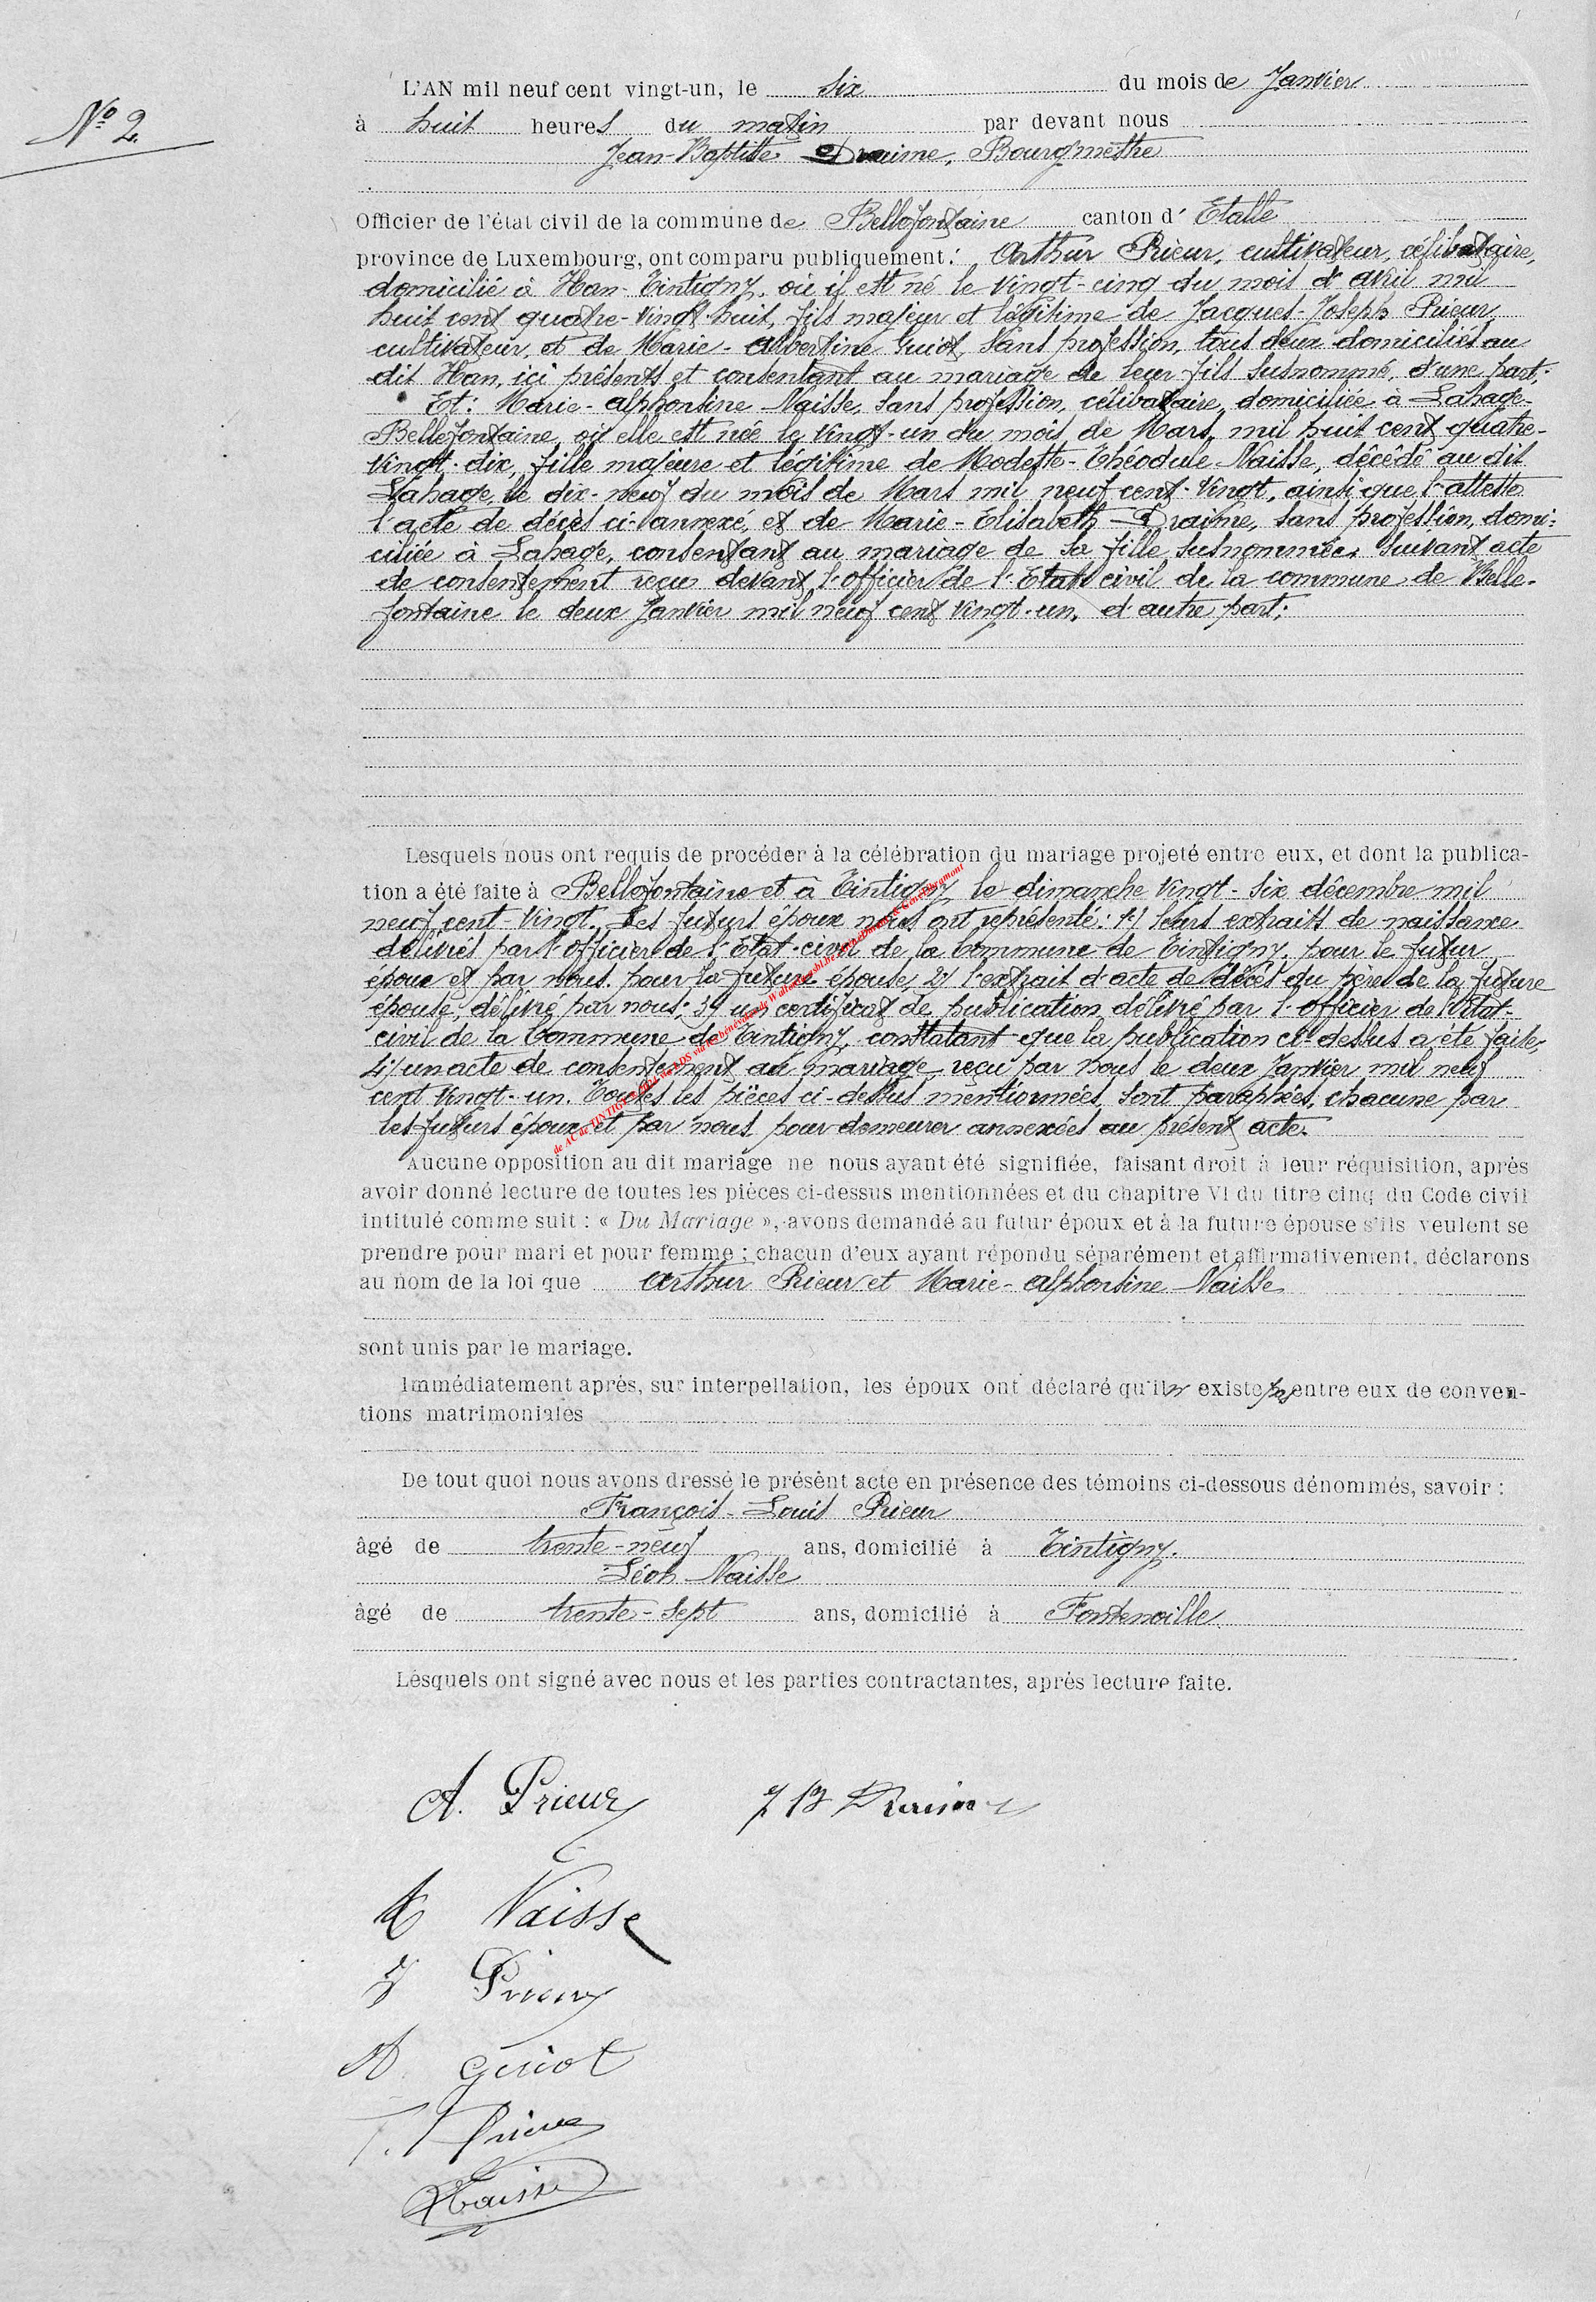 L'AN mil neuf cent vingt-un, le six du mois de Janvier
N° 2.
à huit heures du matin par devant nous
Jean-Baptiste Draime, Bourgmestre
Officier de l'état civil de la commune de Bellefontaine canton d' Etalle
province de Luxembourg, ont comparu publiquement: Arthur Prieur, cultivateur, célibataire,
domicilié à Han-Tintigny, où il est né le vingt-cinq du mois d'avril mil
huit cent quatre-vingt-huit, fils majeur et légitime de Jacques-Joseph Prieur,
cultivateur, et de Marie-Albertine Guiot, sans profession, tous deux domiciliés au
dit Han, ici présents et consentant au mariage de leur fils susnommé, d'une part;
Et: Marie-Alphonsine Naisse, sans profession, célibataire, domiciliée à Lahage-
Bellefontaine, où elle est née le vingt-un du mois de Mars, mil huit cent quatre-
vingt-dix, fille majeure et légitime de Modeste-Théodule Naisse, décédé au dit
Lahage, le dix-neuf du mois de Mars mil neuf cent-vingt, ainsi que l'atteste
l'acte de décès ci-annexé, et de Marie-Elisabeth Draime, sans profession, domi-
ciliée à Lahage, consentant au mariage de sa fille susnommée, suivant acte
de consentement reçu devant l'officier de l'Etat civil de la commune de Belle-
fontaine le deux Janvier mil neuf cent vingt-un, d'autre part;
Lesquels nous ont requis de procéder à la célébration du mariage projeté entre eux, et dont la publica-
tion a été faite à Bellefontaine et à Tintigny, le dimanche vingt-six décembre mil
neuf cent-vingt. Les futurs époux nous ont représenté: 1°/ leurs extraits de naissance
délivrés par l'officier de l'Etat-civil de la Commune de Tintigny, pour le futur
époux et par nous pour la future épouse, 2°/ l'extrait d'acte de décès du père de la future
épouse, délivré par nous; 3°/ un certificat de publication délivré par l'officier de l'Etat-
civil de la Commune de Tintigny, constatant que la publication ci-dessus a été faite,
4°/ un acte de consentement au mariage reçu par nous le deux Janvier mil neuf
cent vingt-un. Toutes les pièces ci-dessus mentionnées, sont paraphées, chacune par
les futurs époux et par nous pour demeurer annexées au présent acte.
Aucune opposition au dit mariage ne nous ayant été signifiée, faisant droit à leur réquisition, après
avoir donné lecture de toutes les pièces ci-dessus mentionnées et du chapitre VI du titre cinq du Code civil
intitulé comme suit : « Du Mariage », avons demandé au futur époux et à la future épouse s'ils veulent se
prendre pour mari et pour femme ; chacun d'eux ayant répondu séparément et affirmativement, déclarons
au nom de la loi que Arthur Prieur et Marie-Alphonsine Naisse
sont unis par le mariage.
Immédiatement après, sur interpellation, les époux ont déclaré qu'il n' existe pas entre eux de conven-
tions matrimoniales
De tout quoi nous avons dressé le présent acte en présence des témoins ci-dessous dénommés, savoir :
François-Louis Prieur
âgé de trente-neuf ans, domicilié à Tintigny.
Léon Naisse
âgé de trente-sept ans, domicilié à Fontenoille
Lesquels ont signé avec nous et les parties contractantes, après lecture faite.
A. Prieur J B Draime
Naisse
J Prieur
A. Guiot
Prieur
Naisse